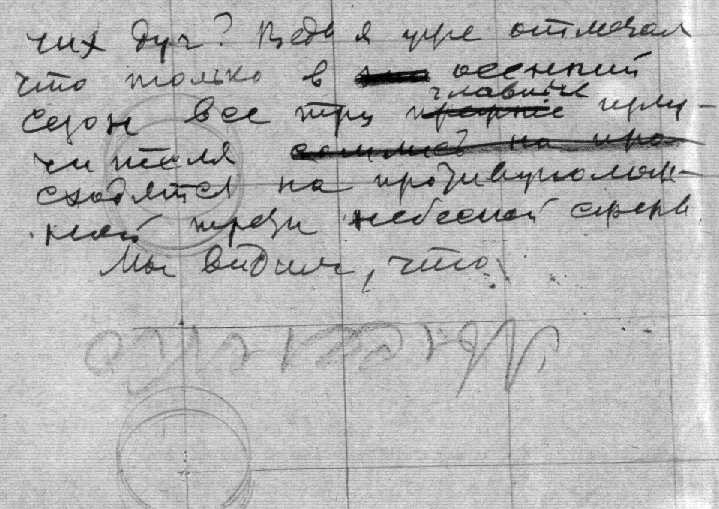 чих дуг? Ведь я уже отмечал
что только в осенний
сезон все три главные излу-
чителя
сходятся на противуполож-
ной небесной сферы.
Мы видим, что